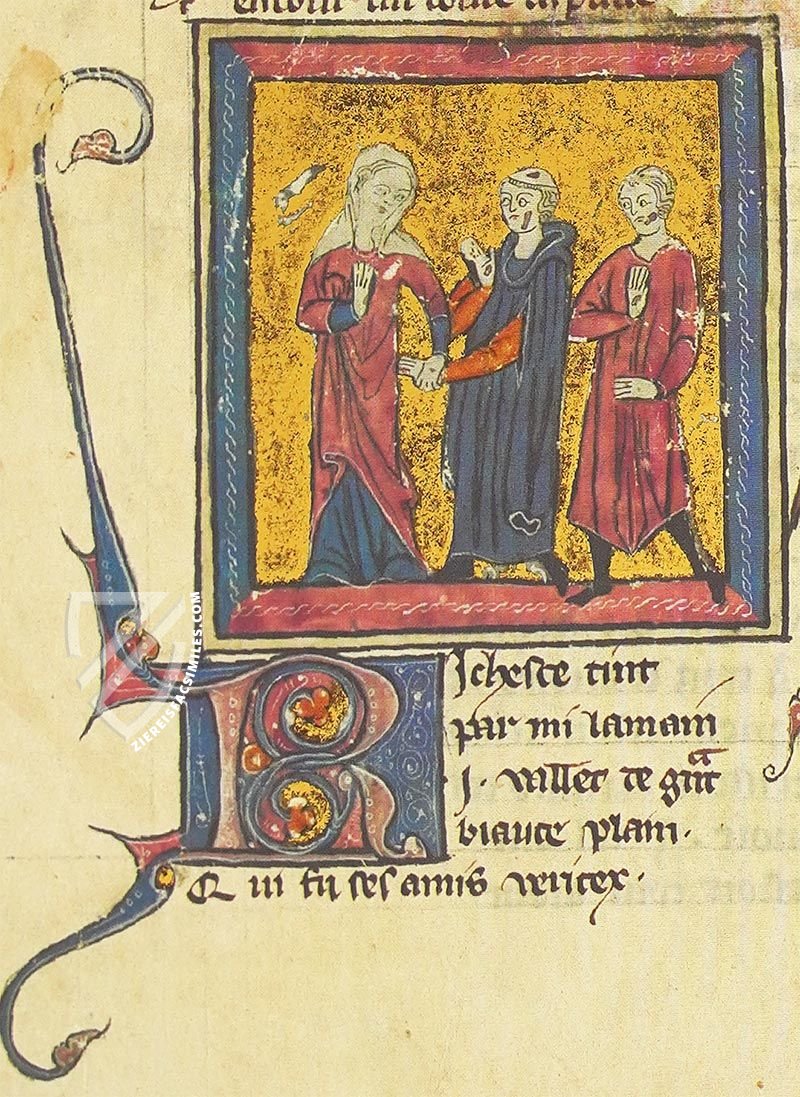 Richesce tint
par mi la main
.I. vallet de gͣnt
biaute plain.
Qui fu ses amis veritex.
ZIEREISFACSIMILES.COM